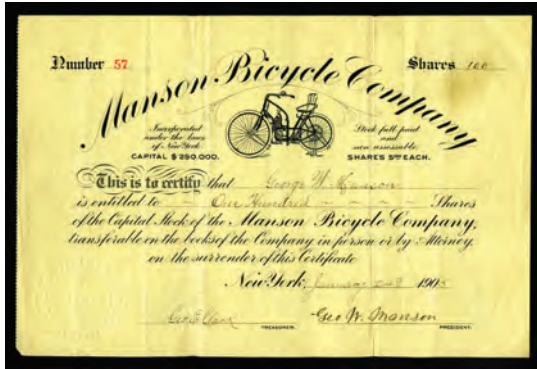 Number 57
Shares 100
Manson Bicycle Company
Incorporated
under the laws
of New York.
CAPITAL $250,000.
Stock full paid
and
non assessable.
SHARES $5⁰⁰ EACH.
This is to certify that George W. Manson
is entitled to One Hundred Shares
of the Capital Stock of the Manson Bicycle Company,
transferable on the books of the Company in person or by Attorney
on the surrender of this Certificate
New York, January 1905
TREASURER.
Geo W. Manson
PRESIDENT.